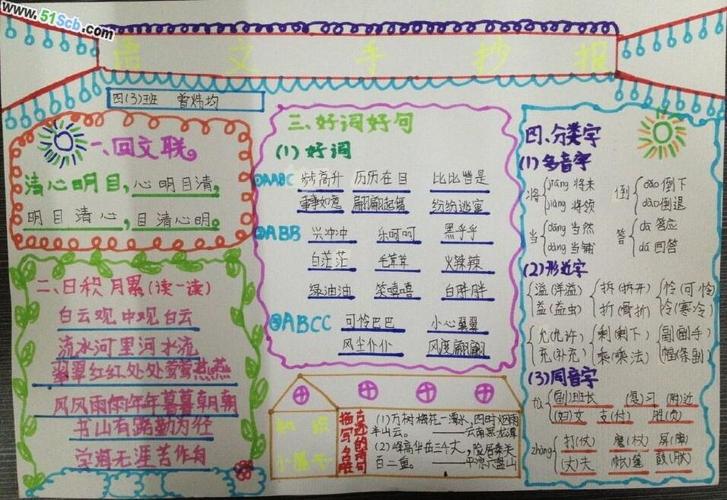 www.51Scb.com
语文手抄报
四(3)班 曾炜均
一、回文联
清心明目,心明目清,
明目清心,目清心明。
二、日积月累(读一读)
白云观中观白云
流水河里河水流
翠翠红红处处莺莺燕燕
风风雨雨年年暮暮朝朝
书山有路勤为径
学海无涯苦作舟
三、好词好句
(1)好词
①AABC 步步高升 历历在目 比比皆是
事事如意 翩翩起舞 纷纷逃窜
②ABB 兴冲冲 乐呵呵 黑乎乎
白茫茫 毛茸茸 火辣辣
绿油油 笑嘻嘻 白胖胖
③ABCC 可怜巴巴 小心翼翼
风尘仆仆 风度翩翩
描写自然
(1)万树梅花一潭水,四时烟雨
半山云。——云南黑龙潭
(2)峰高华岳三千丈,险居秦关
百二重。——平凉六盘山
四、分类字
(1)多音字
将 jiāng 将来 jiàng 将领
倒 dǎo 倒下 dào 倒退
当 dāng 当然 dàng 当铺
答 dā 答应 dá 回答
(2)形近字
溢(洋溢) 益(益虫)
拆(拆开) 折(骨折)
怜(可怜) 冷(寒冷)
允(允许) 充(补充)
剩(剩下) 乘(乘法)
副(副手) 幅(条幅)
(3)同音字
fù (副)班长 (复)习 (附)近
(妇)女 支(付) (负)责
zhàng 打(仗) 魔(杖) 屏(障)
(丈)夫 (帐)篷 鼓(胀)